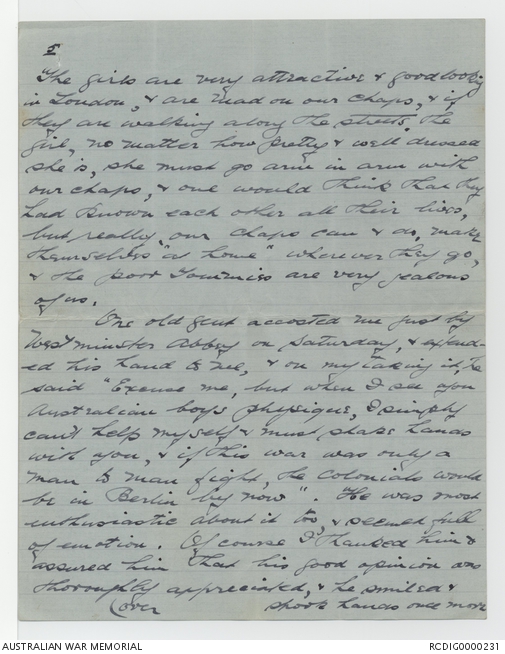 5
"The girls are very attractive & goodlooking
in London, & are mad on our chaps, & if
they are walking along the streets, the
girl, no matter how pretty & well dressed
she is, she must go arm in arm with
our chaps, & one would think that they
had known each other all their lives,
but really our chaps can & do, make
themselves "at home" wherever they go,
& the poor Tommies are very jealous
of us.
One old gent accosted me just by
Westminster Abbey on Saturday, & extend-
ed his hand to me, & on my taking it, he
said "Excuse me, but when I see you
Australian boys physique, I simply
can't help myself & must shake hands
with you, & if this war was only a
man to man fight, the colonials would
be in Berlin by now". He was most
enthusiastic about it too, & seemed full
of emotion. Of course I thanked him &
assured him that his good opinion was
thoroughly appreciated, & he smiled &
(over shook hands once more
AUSTRALIAN WAR MEMORIAL RCDIG0000231